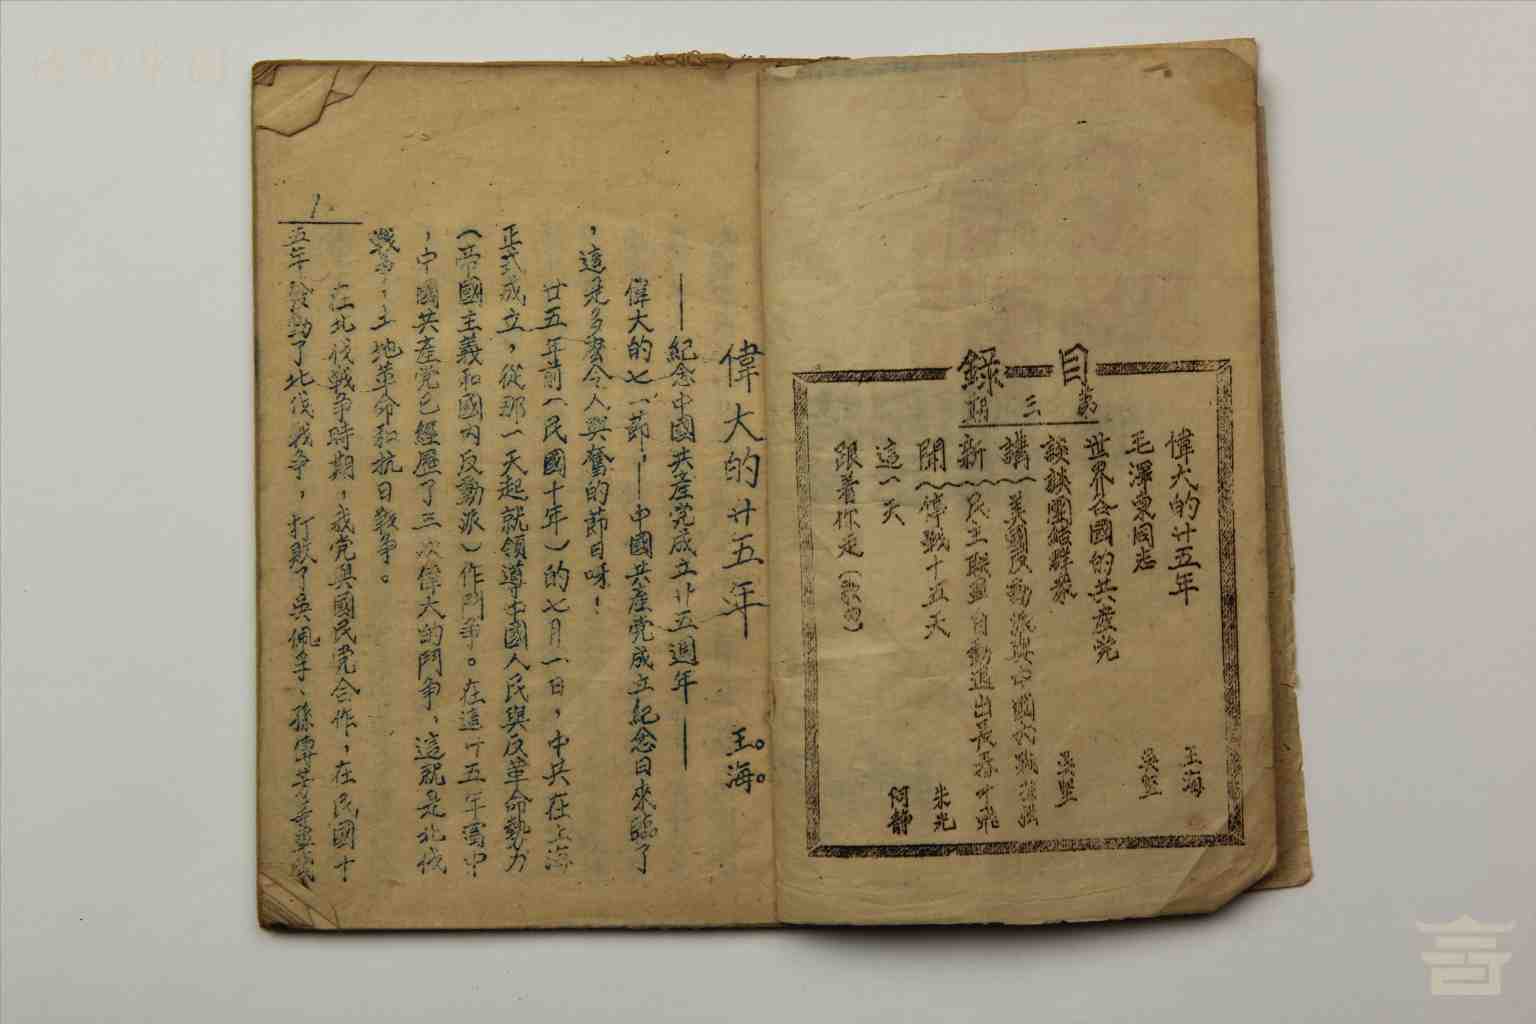 目錄
第三期
偉大的廿五年 王海
毛澤東同志 吳堅
世界各國的共產党
談談團結群衆 吳堅
講 美國反動派與中國內戰
新 民主聯盟自動退出長春 叶飛
聞 停戰十五天 朱光
這一天 何靜
跟着你走(歌曲)
偉大的廿五年 王海
——紀念中國共產党成立廿五週年——
偉大的七一節,——中國共產党成立紀念日來臨了
,這是多麼令人興奮的節日呀!
廿五年前(民國十年)的七月一日,中共在上海
正式成立,從那一天起就領導中國人民與反革命勢力
(帝國主義和國內反動派)作鬥爭。在這廿五年當中
,中國共產党已經歷了三次偉大的鬥争、這就是北伐
戰爭,土地革命和抗日戰争。
在北伐戰争時期,我党與國民党合作,在民國十
五年發動了北伐戰争,打敗了吳佩孚、孫傳芳等軍
1